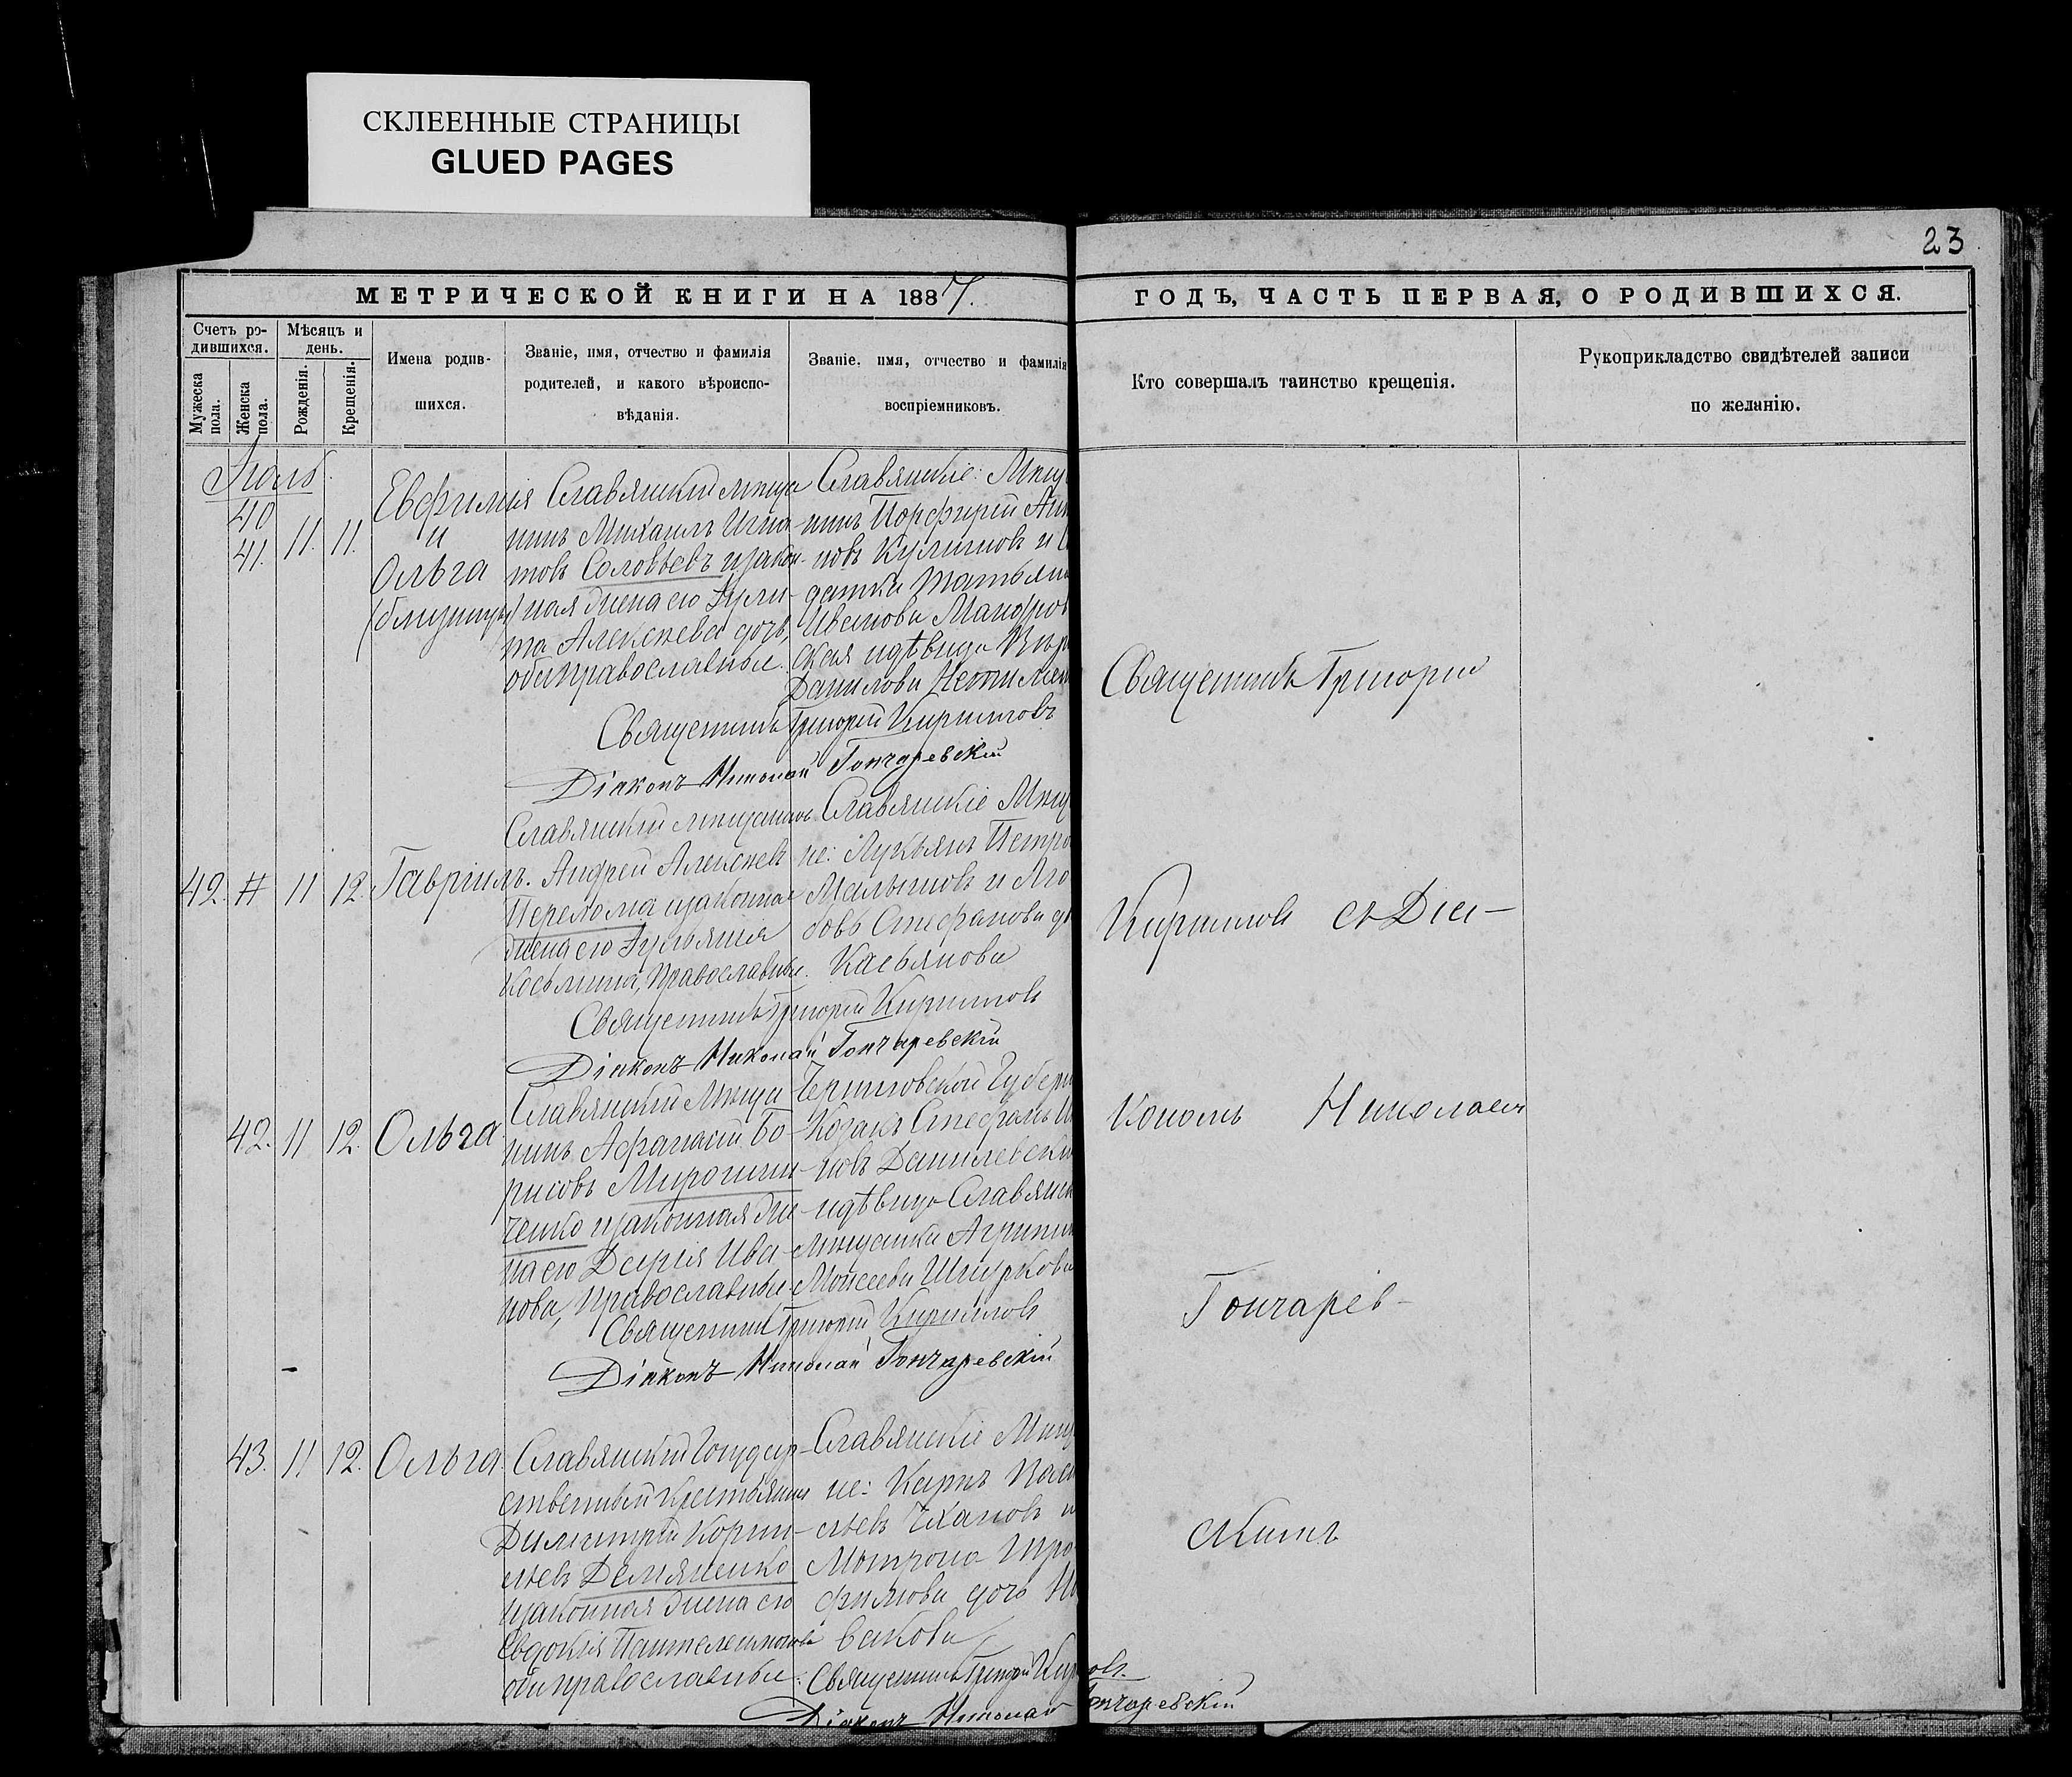 СКЛЕЕННЫЕ СТРАНИЦЫ
GLUED PAGES
23
МЕТРИЧЕСКОЙ КНИГИ НА 1887.
ГОДЪ, ЧАСТЬ ПЕРВАЯ, О РОДИВШИХСЯ.
Счетъ ро-
дившихся.
Мужеска
пола.
Женска
пола.
Мѣсяцъ и
день.
Рожденія.
Крещенія.
Имена родив-
шихся.
Званіе, имя, отчество и фамилія
родителей, и какого вѣроиспо-
вѣданія.
Званіе, имя, отчество и фамилія
воспріемниковъ.
Кто совершалъ таинство крещенія.
Рукоприкладство свидѣтелей записи
по желанію.
40
41.
11.
11.
Евфимія
и
Ольга
(близнецы)
Славянскій мѣща
нинъ Михаилъ Игна-
товъ Соловьевъ изакон-
ная жена его Iули-
та Алексѣева дочь,
оба православные.
Славянскіе: Мѣщ
нинъ Порфирій
новъ Куликовъ и
датка Татьян
Иванова
ская идѣвица Вар
Данилова
Священникъ Григорій Кирилловъ
Діаконъ Николай Гончаревскій
42.
#
11
12.
Гавріилъ.
Славянскій мѣщанинъ
Андрей Алексѣевъ
Перелома изаконная
жена его Iуліянія
Косьмина, православные.
Славянскіе Мѣщ
не: Лукьянъ Петро
Малыновъ и Лю
бовь Стефанова
Касьянова
Священникъ Григорій Кирилловъ
Діаконъ Николай Гончаревскій
42.
11
12.
Ольга
Славянскій Мѣща
нинъ Афанасій Бо-
рисовъ Мирошни-
ченко изаконная же-
на его Дарія Ива-
нова, православные
Черниговской Губерн
Козакъ Стефанъ И
новъ Данилевскі
идѣвица Славянск
Мѣщанка Агрипин
Моисеева Шнуркова
Священникъ Григорій Кирилловъ
Діаконъ Николай Гончаревскій
43.
11
12.
Ольга
Славянскій Государ-
ственный Крестьянинъ
Димитрій Корни-
льевъ Демяненко
изаконная жена его
Евдокія Пантелеимонова
оба православные.
Славянскіе Мѣщ
не: Карпъ Васи
льевъ Чхановъ и
Мотрона Тро
фимова дочь Но
вакова
Священникъ Григорій Кирилловъ.
Діаконъ Николай Гончаревскій
Священникъ Григорій
Кирилловъ съ Діа-
кономъ Николаемъ
Гончарев-
скимъ